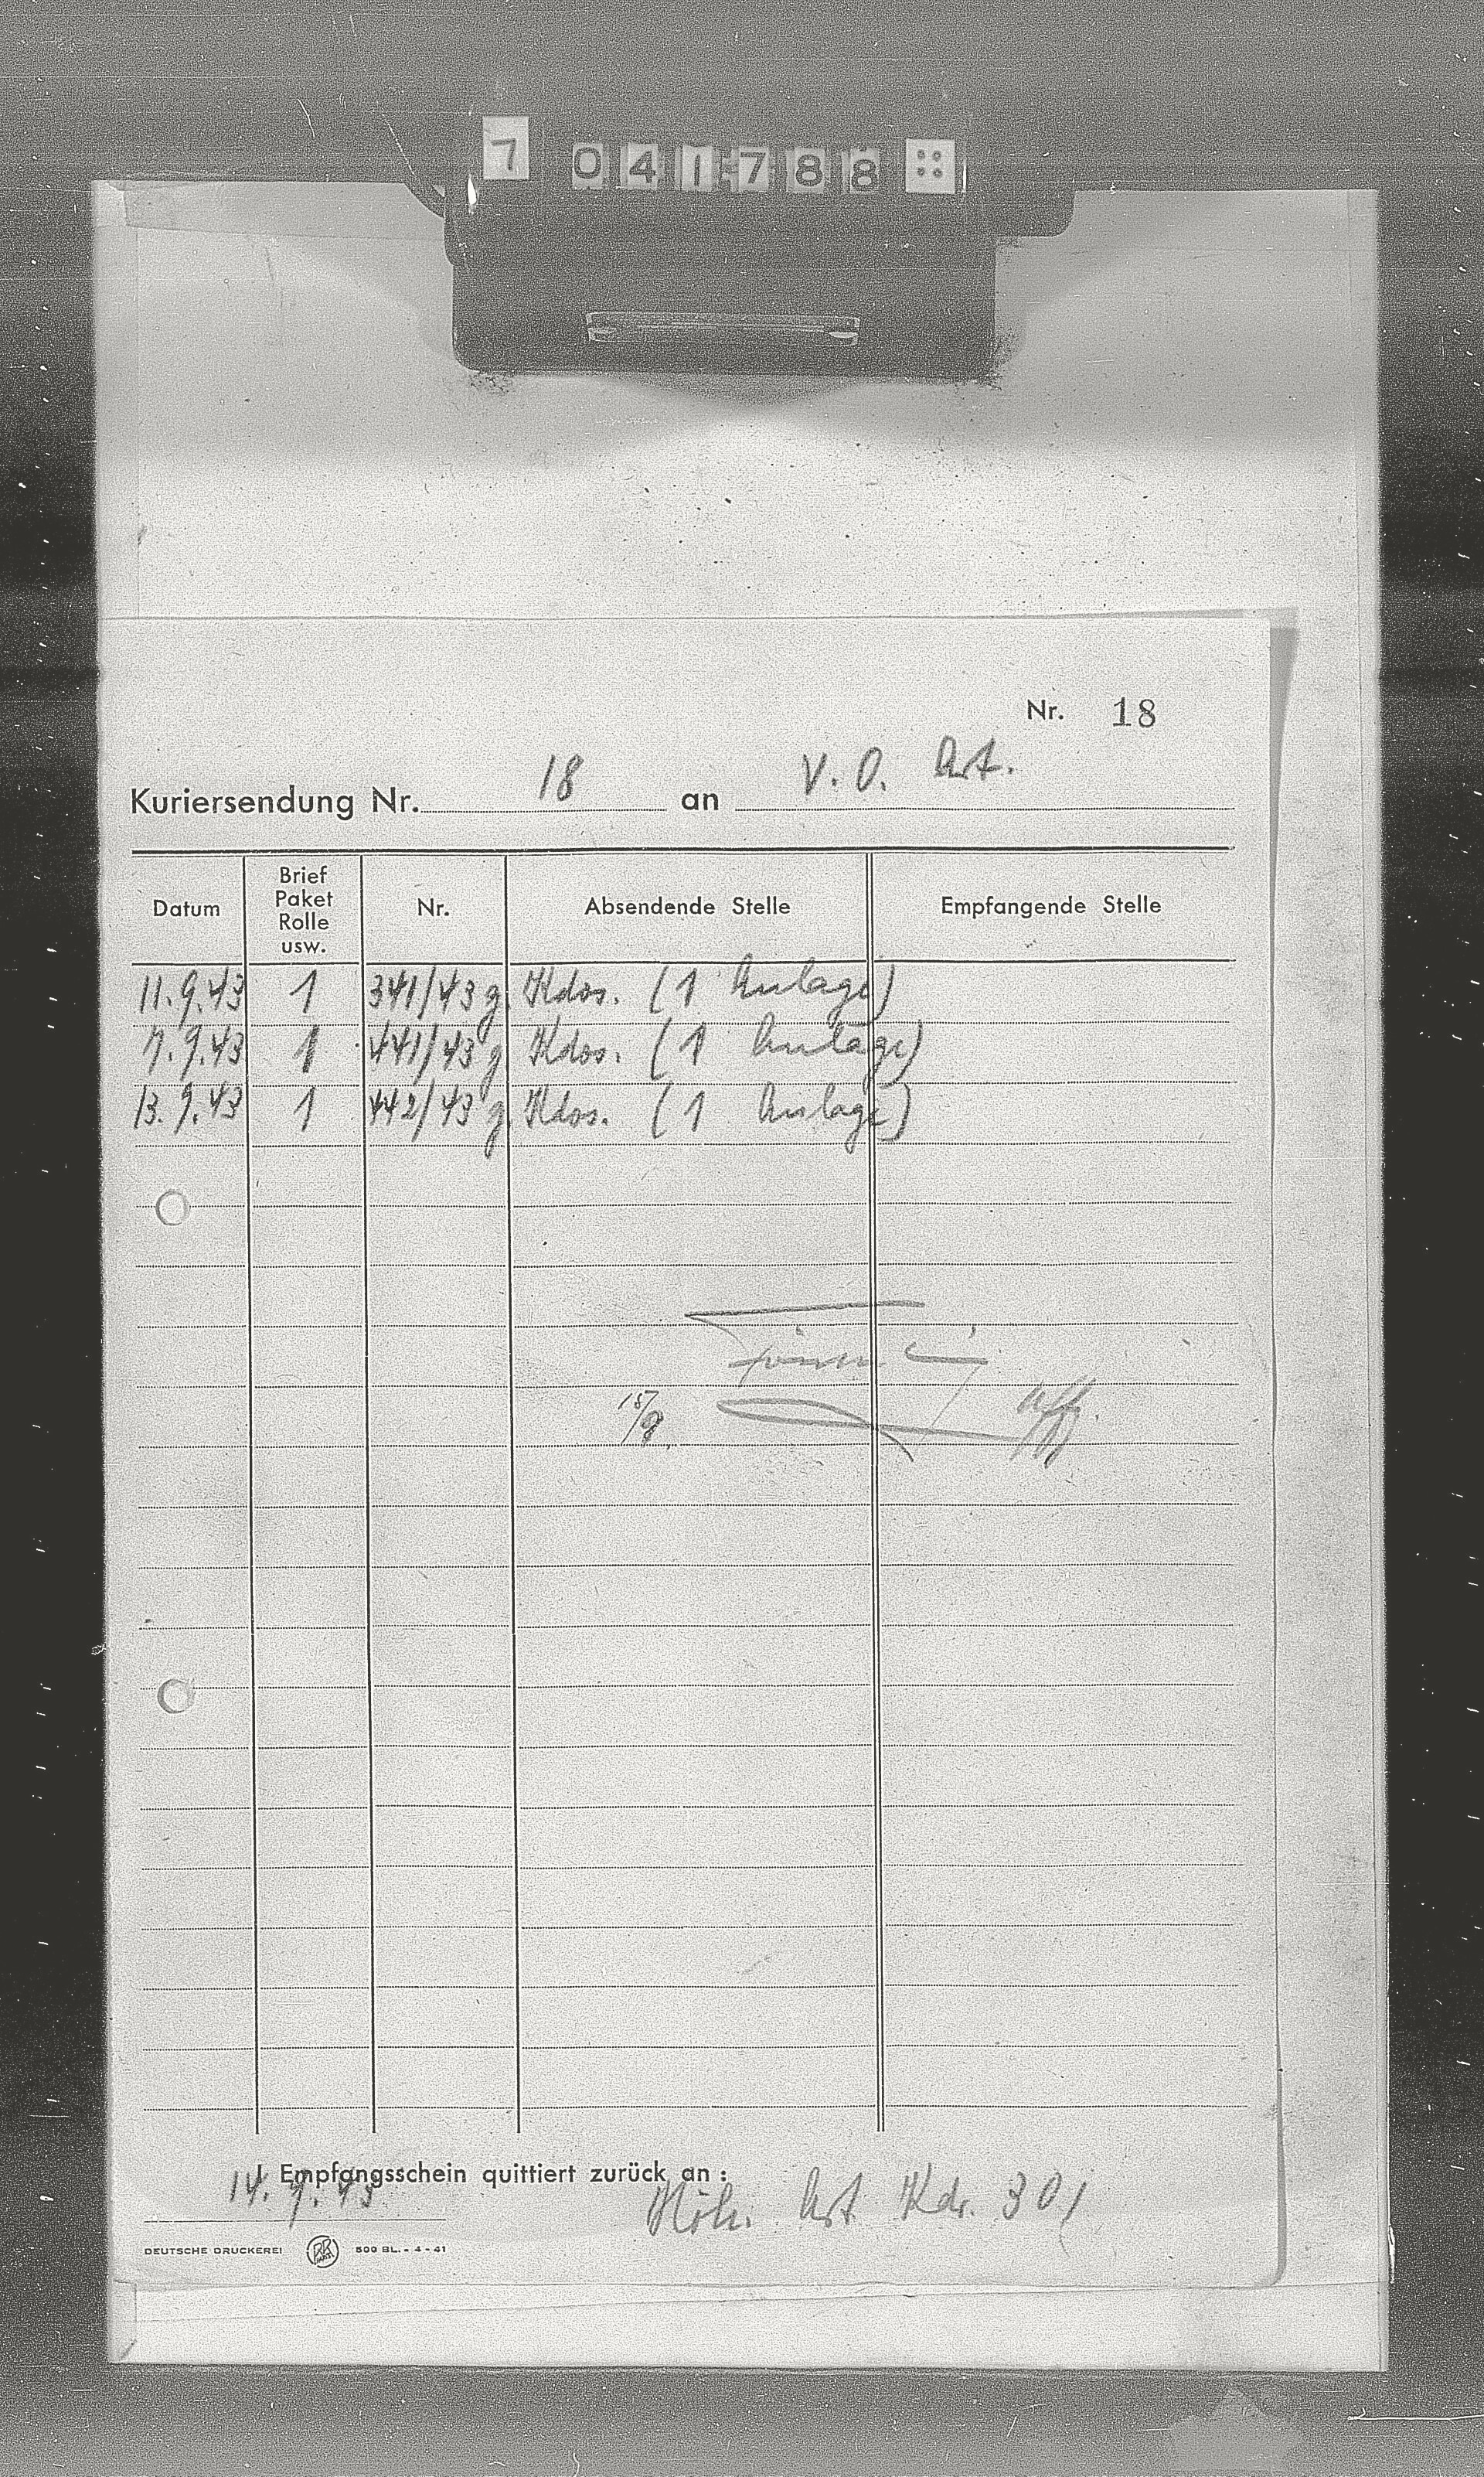 7 041788
Nr. 18
Kuriersendung Nr. 18 an V.O. Art.
Datum Brief Paket Rolle usw. Nr. Absendende Stelle Empfangende Stelle
11.9.43 1 341/43 g. Kdos. (1 Anlage)
7.9.43 1 441/43 g. Kdos. (1 Anlage)
13.9.43 1 442/43 g. Kdos. (1 Anlage)
15/9.
Uffz.
Empfangsschein quittiert zurück an:
14.9.43 Höh. Art. Kdr. 301
DEUTSCHE DRUCKEREI 500 BL. - 4 - 41